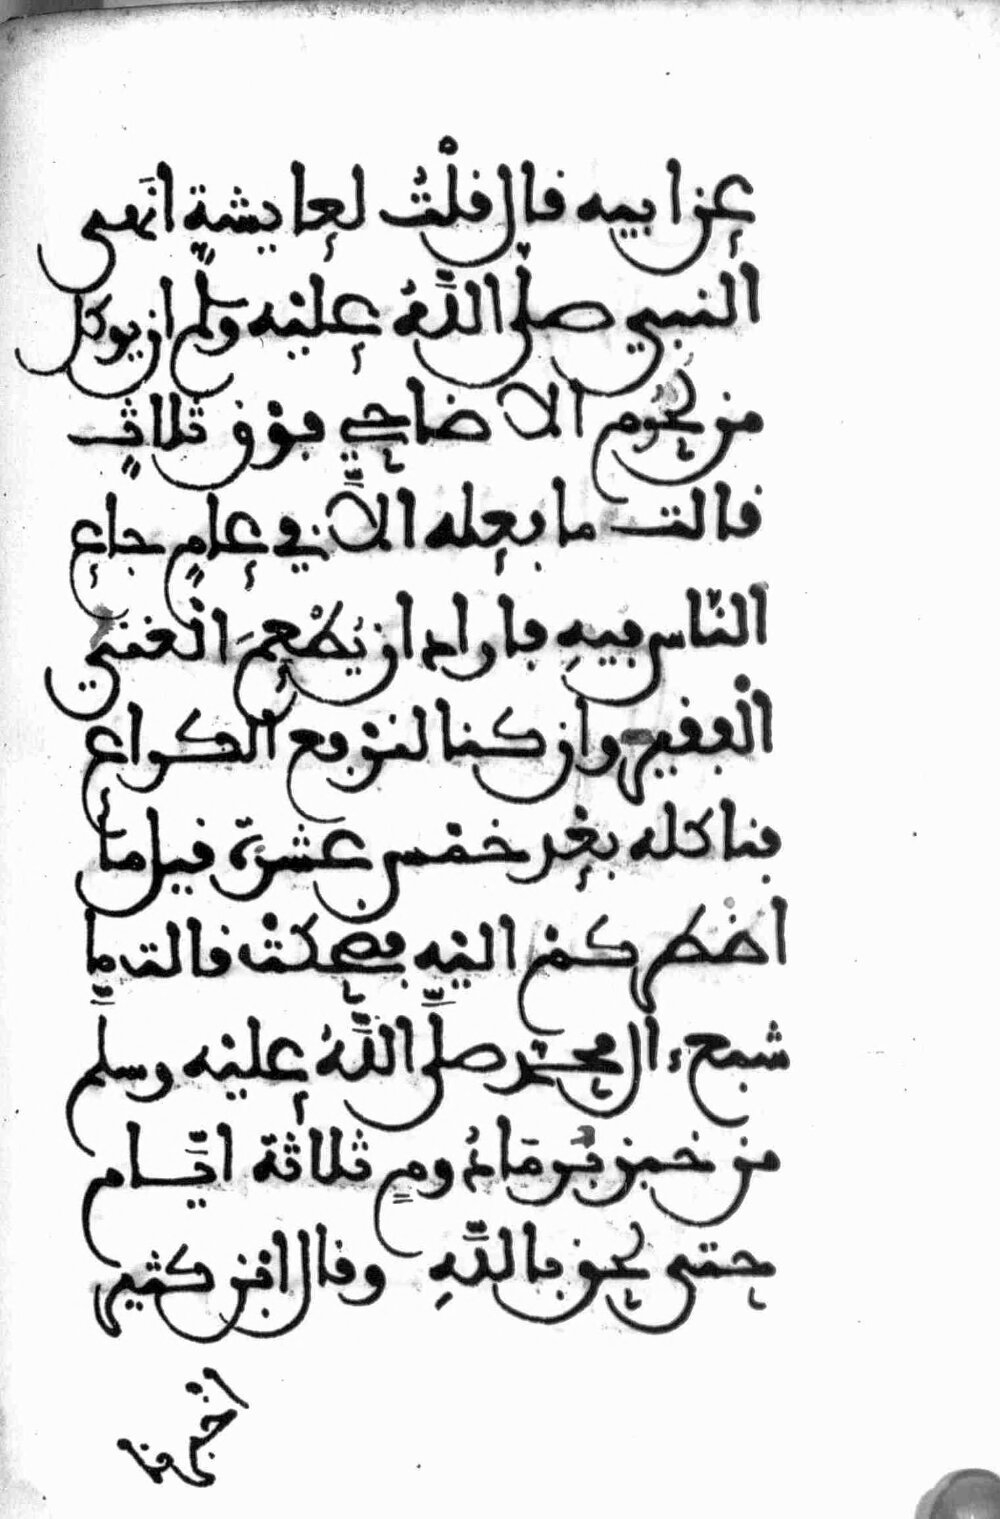 عن ابيه قال قلْتُ لعايشةٍ انَهى
النبيي صلى اللَّهُ عليْه وسلم ان يوكل
من لحُوم الاضاحيي فوْق ثلاثٍ
قالت ما فعله الاَّ في عامٍ جاع
النّاس فيهِ فاراد ان يُطْعِمَ الْغنيي
الْفقير وان كنا لنرْفع الكراع
فناكله بعْد خمْس عشرَة قيل ما
اضطركمْ اليْه فضحكتْ قالت ما
شبع ءال محمّد صلَّى اللَّهُ عليْه وسلَّم
من خبز بُر مَادُومٍ ثلاثة ايَّام
حتى لحق باللَّهِ وقال ابْن كثير
اخْبرنا